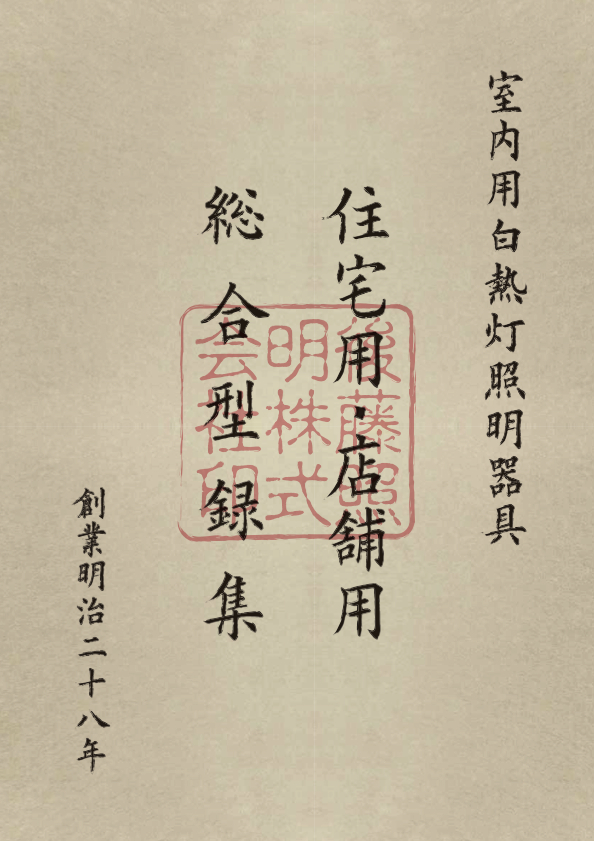 室内用白熱灯照明器具
住宅用・店舗用
総合型録集
創業明治二十八年
後藤照
明株式
会社印